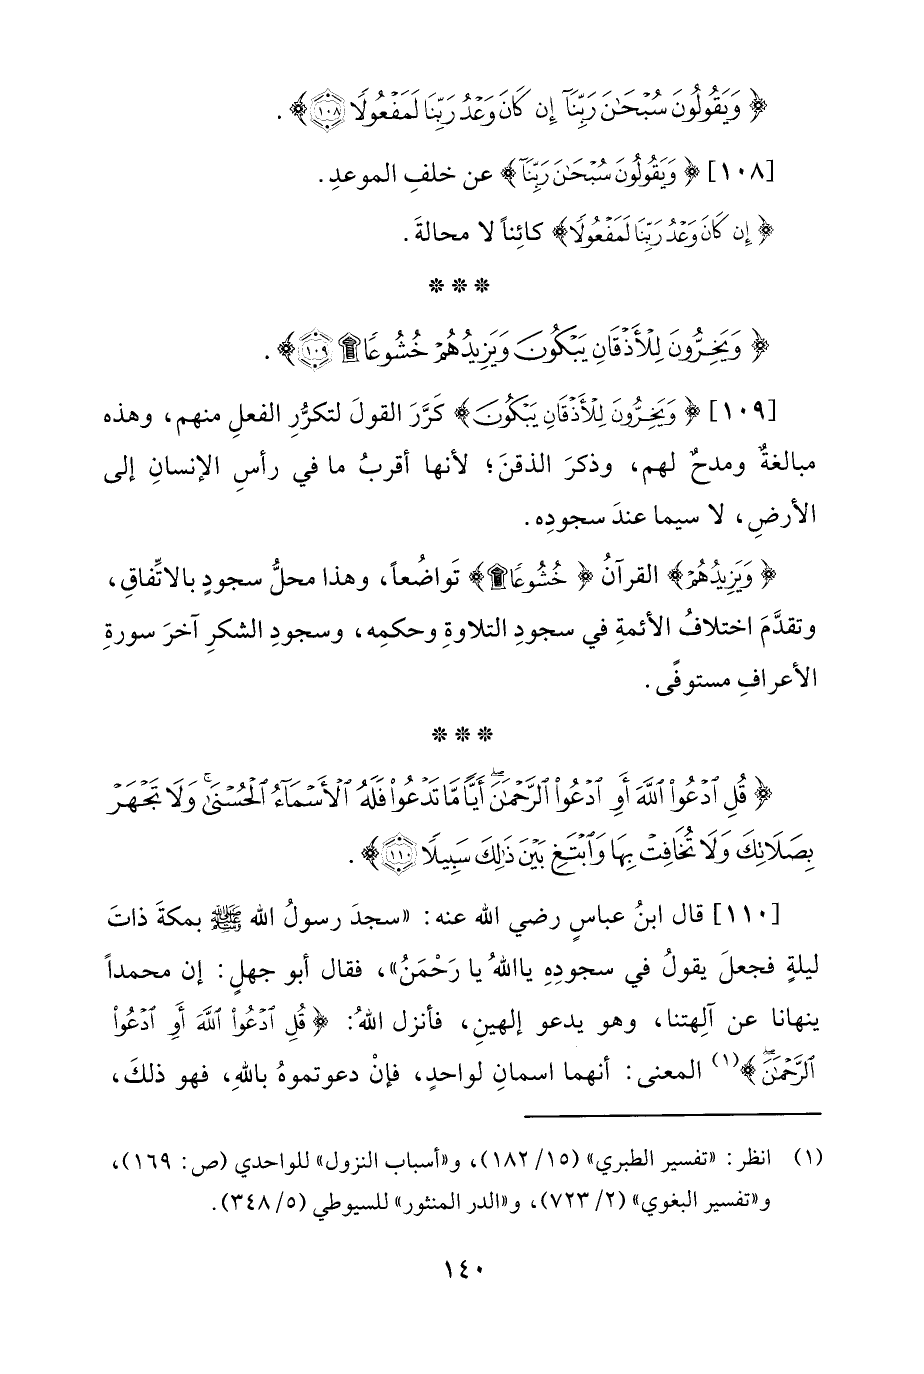 ﴿ وَيَقُولُونَ سُبْحَٰنَ رَبِّنَآ إِن كَانَ وَعْدُ رَبِّنَا لَمَفْعُولًا ١٠٨ ﴾ .
[١٠٨] ﴿ وَيَقُولُونَ سُبْحَٰنَ رَبِّنَآ ﴾ عن خلفِ الموعدِ .
﴿ إِن كَانَ وَعْدُ رَبِّنَا لَمَفْعُولًا ﴾ كائِناً لا محالةَ .
* * *
﴿ وَيَخِرُّونَ لِلْأَذْقَانِ يَبْكُونَ وَيَزِيدُهُمْ خُشُوعًا ۩ ١٠٩ ﴾ .
[١٠٩] ﴿ وَيَخِرُّونَ لِلْأَذْقَانِ يَبْكُونَ ﴾ كَرَّرَ القولَ لتكرُّرِ الفعلِ منهم، وهذه
مبالغةٌ ومدحٌ لهم، وذكرَ الذقنَ؛ لأنها أقربُ ما في رأسِ الإنسانِ إلى
الأرضِ، لا سيما عندَ سجودِه .
﴿ وَيَزِيدُهُمْ ﴾ القرآنُ ﴿ خُشُوعًا ۩ ﴾ تَواضُعاً، وهذا محلُّ سجودٍ بالاتِّفاقِ،
وتقدَّمَ اختلافُ الأئمةِ في سجودِ التلاوةِ وحكمِه، وسجودِ الشكرِ آخرَ سورةِ
الأعرافِ مستوفًى .
* * *
﴿ قُلِ ٱدْعُوا۟ ٱللَّهَ أَوِ ٱدْعُوا۟ ٱلرَّحْمَٰنَ ۖ أَيًّا مَّا تَدْعُوا۟ فَلَهُ ٱلْأَسْمَآءُ ٱلْحُسْنَىٰ ۚ وَلَا تَجْهَرْ
بِصَلَاتِكَ وَلَا تُخَافِتْ بِهَا وَٱبْتَغِ بَيْنَ ذَٰلِكَ سَبِيلًا ١١٠ ﴾ .
[١١٠] قال ابنُ عباسٍ رضي الله عنه: «سجدَ رسولُ الله ﷺ بمكةَ ذاتَ
ليلةٍ فجعلَ يقولُ في سجودِهِ ياالله يا رَحْمَنُ»، فقال أبو جهلٍ: إن محمداً
ينهانا عن آلِهتنا، وهو يدعو إلهينِ، فأنزل اللهُ: ﴿ قُلِ ٱدْعُوا۟ ٱللَّهَ أَوِ ٱدْعُوا۟
ٱلرَّحْمَٰنَ ۖ ﴾(١) المعنى: أنهما اسمانِ لواحدٍ، فإنْ دعوتموهُ باللهِ، فهو ذلكَ،
(١) انظر: «تفسير الطبري» (١٥/ ١٨٢)، و«أسباب النزول» للواحدي (ص: ١٦٩)،
و«تفسير البغوي» (٢/ ٧٢٣)، و«الدر المنثور» للسيوطي (٥/ ٣٤٨).
١٤٠